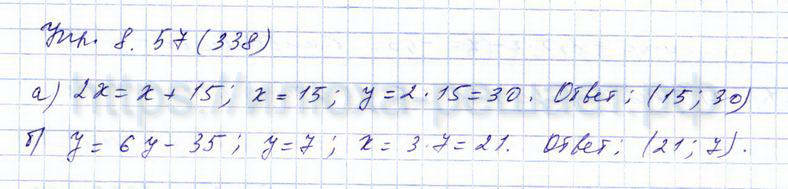 Упр. 8. 57 (338)
а) 2x = x + 15; x = 15; y = 2 · 15 = 30. Ответ: (15; 30)
б) y = 6y - 35; y = 7; x = 3 · 7 = 21. Ответ: (21; 7).